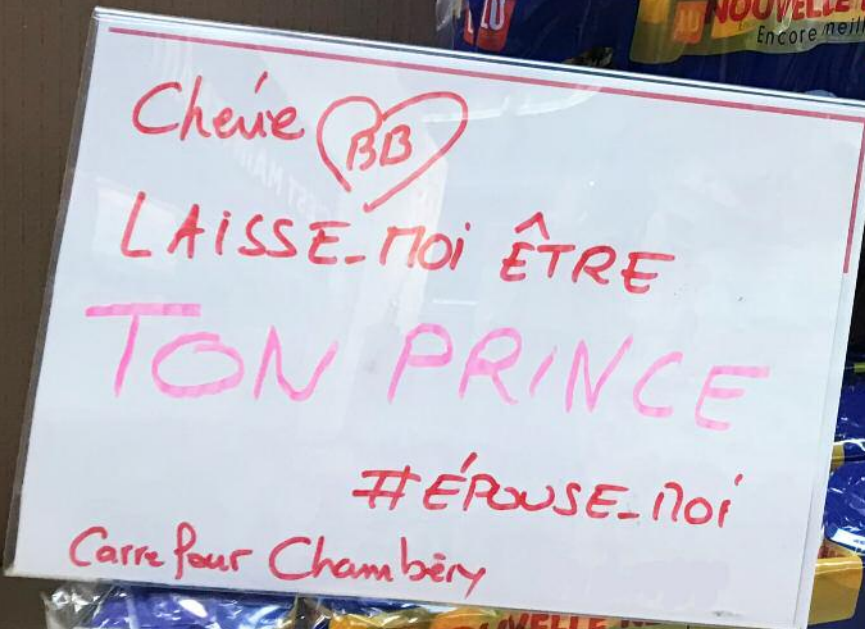 LU
LU NOUVELLE
Encore meill
Chérie BB
LAISSE-MOI ÊTRE
TON PRINCE
#ÉPOUSE-MOI
Carrefour Chambéry
UVELLE